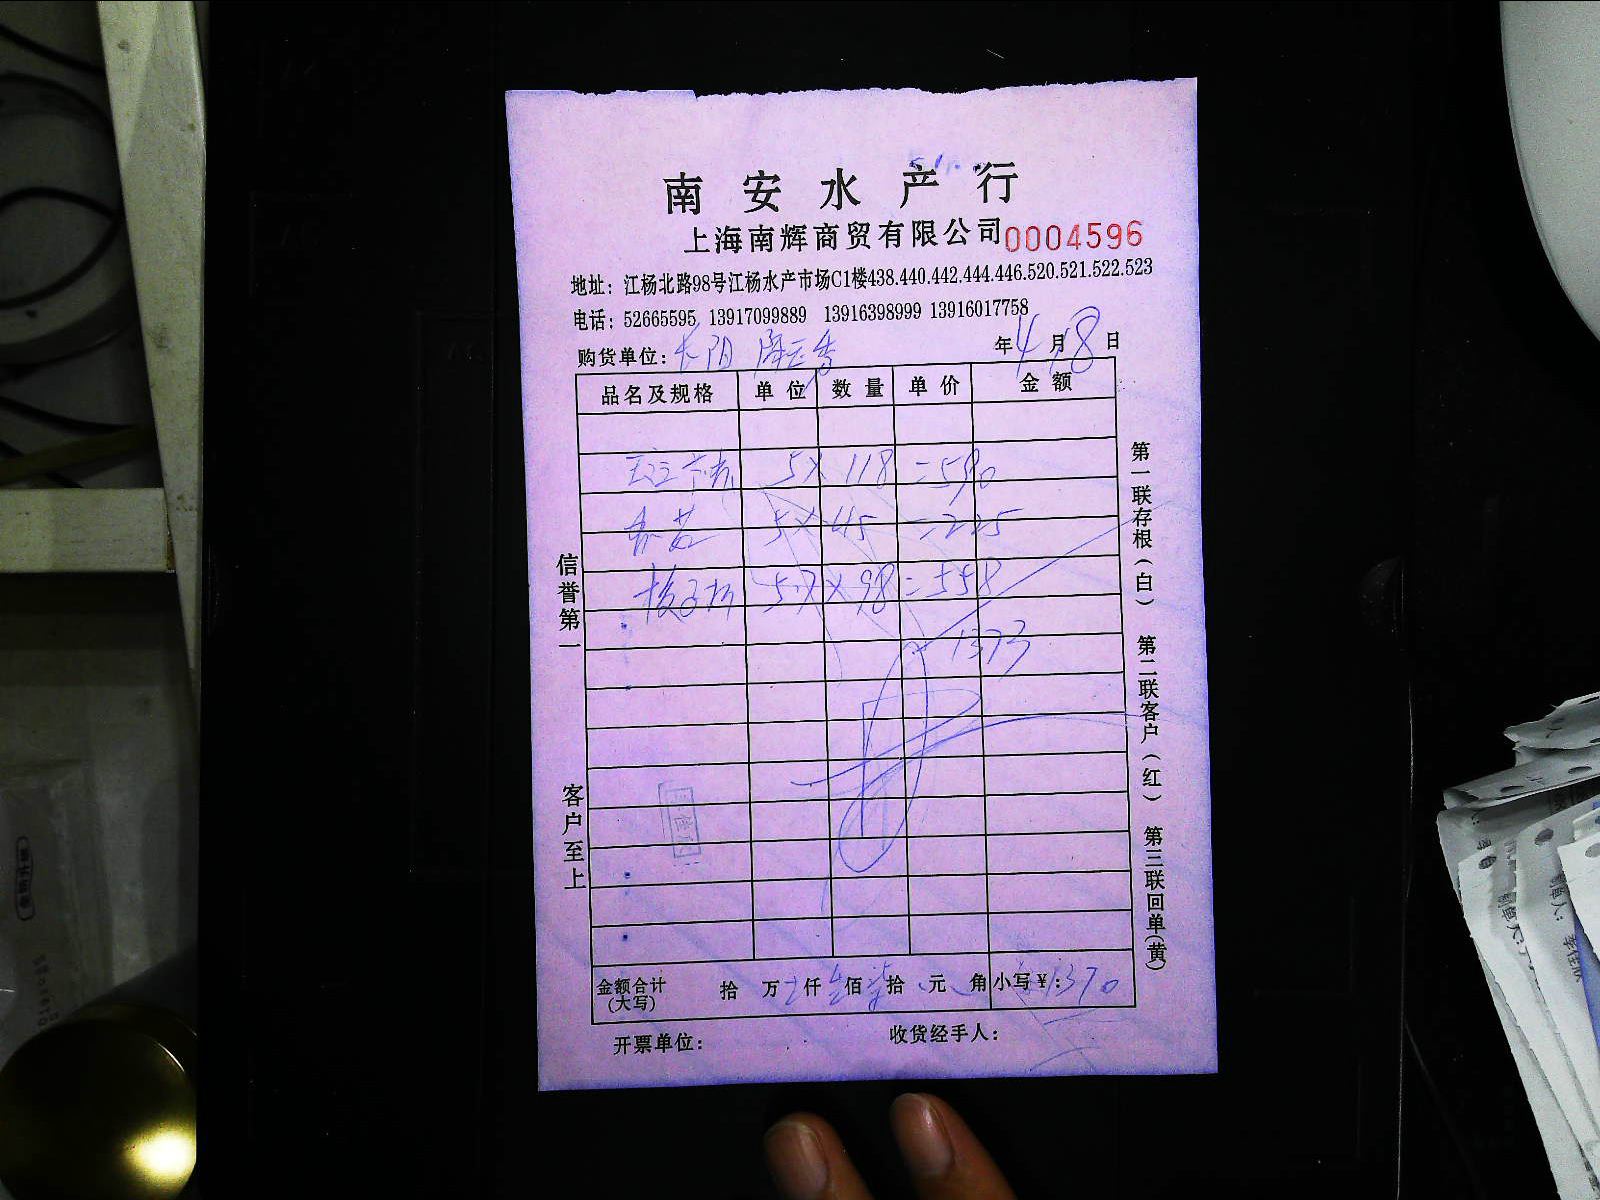 南安水产行
上海南辉商贸有限公司 0004596
地址：江杨北路98号江杨水产市场C1楼438.440.442.444.446.520.521.522.523
电话：52665595 13917099889 13916398999 13916017758
购货单位： 年 4 月 18 日
品名及规格 单位 数量 单价 金额
5 × 118 = 590
5 × 45 = 225
5.7 × 98 = 558
1373
金额合计（大写） 拾 万 仟 佰 拾 元 角 小写￥：1370
开票单位： 收货经手人：
信誉第一
客户至上
第一联存根（白） 第二联客户（红） 第三联回单（黄）